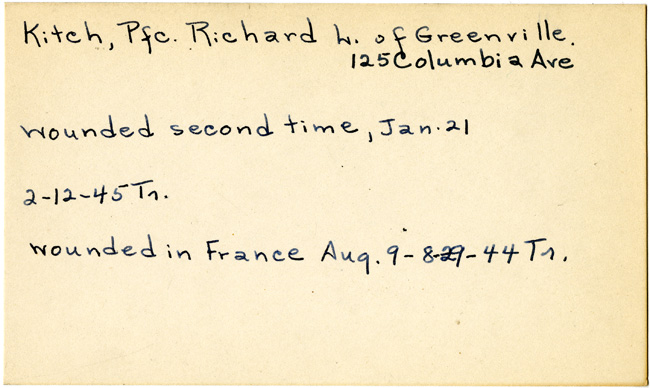 Kitch, Pfc. Richard L. of Greenville.
125 Columbia Ave
wounded second time, Jan. 21
2-12-45 Tr.
wounded in France Aug. 9 - 8-29-44 Tr.